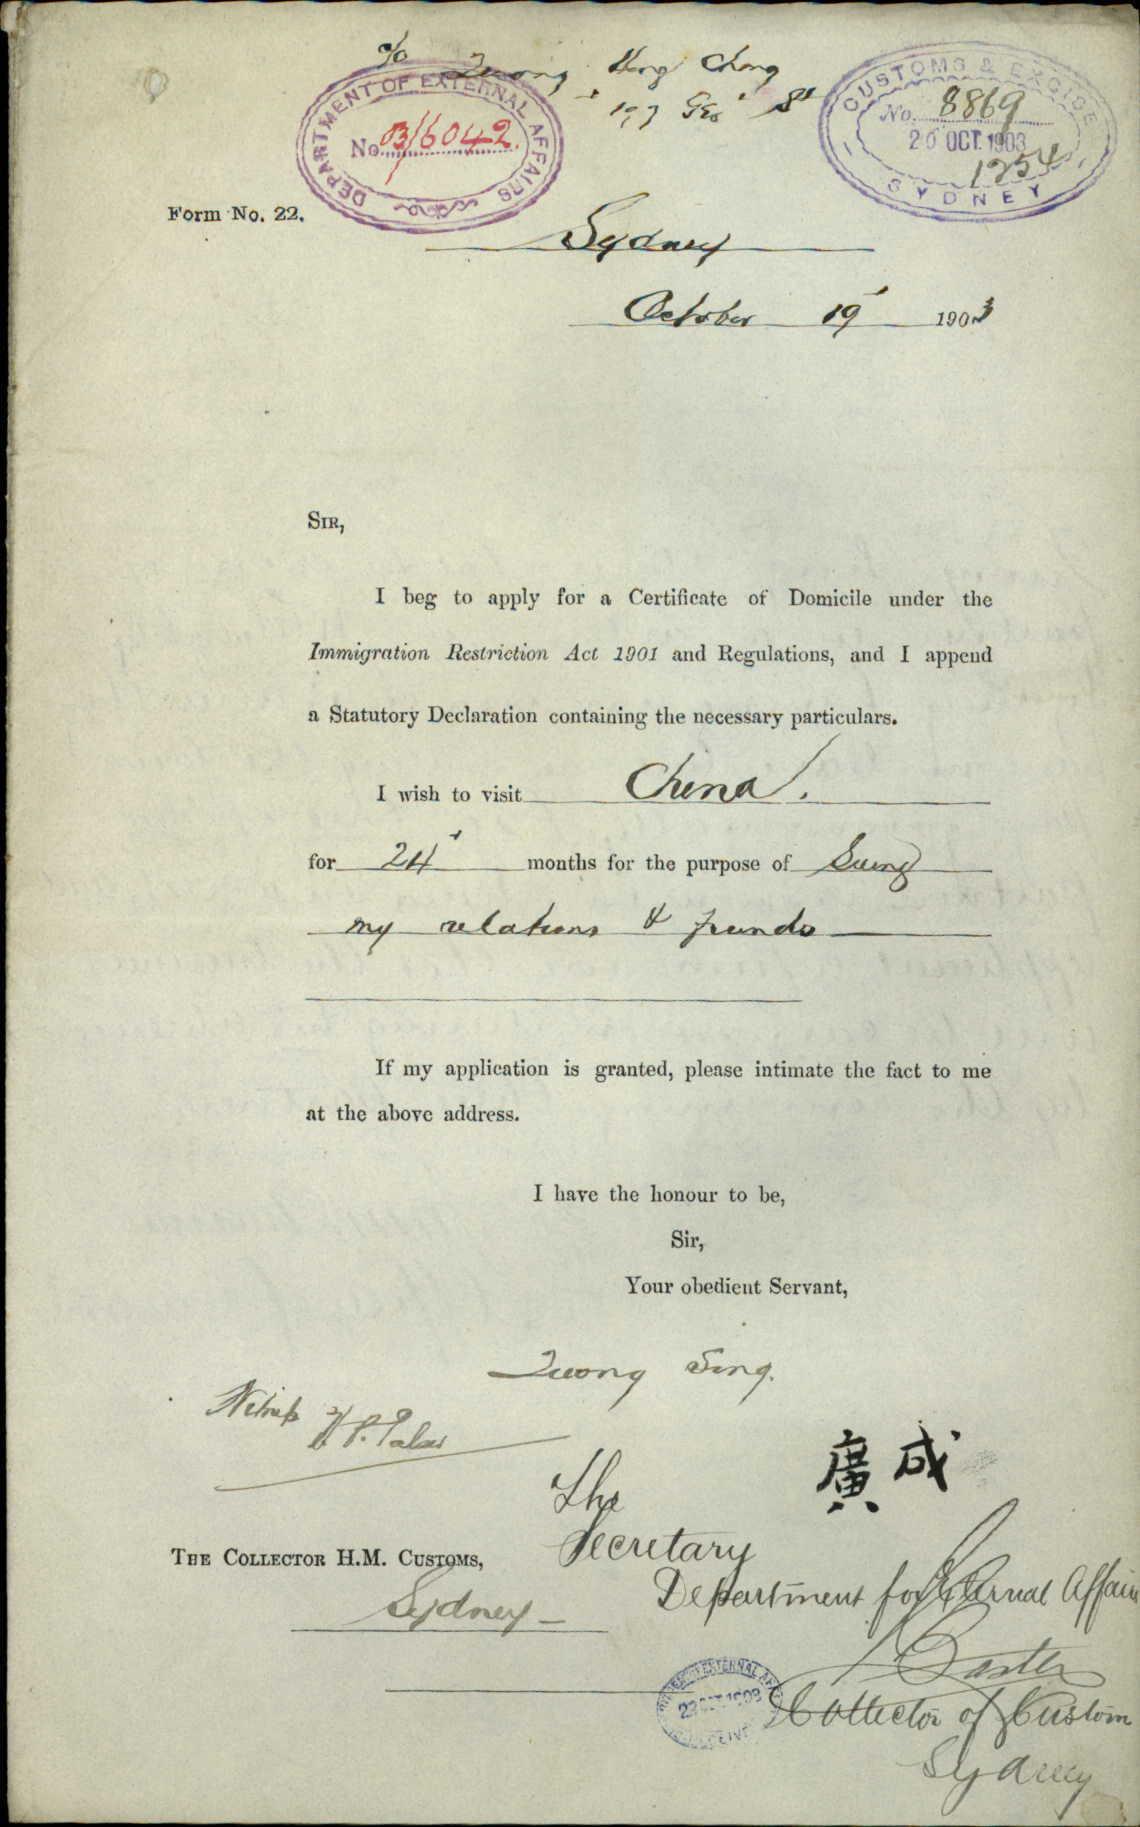 c/o Quong Hong Chong
197 Geo' St
DEPARTMENT OF EXTERNAL AFFAIRS
No. 03/6042
CUSTOMS & EXCISE
No. 8869
20 OCT. 1903
1254
SYDNEY
Form No. 22.
Sydney
October 19 1903
SIR,
I beg to apply for a Certificate of Domicile under the
Immigration Restriction Act 1901 and Regulations, and I append
a Statutory Declaration containing the necessary particulars.
I wish to visit China.
for 24 months for the purpose of Seeing
my relations & friends
If my application is granted, please intimate the fact to me
at the above address.
I have the honour to be,
Sir,
Your obedient Servant,
Quong Sing.
Witness
廣成
The
Secretary
THE COLLECTOR H.M. CUSTOMS,
Department for External Affairs
Sydney
Baxter
Collector of Customs
Sydney